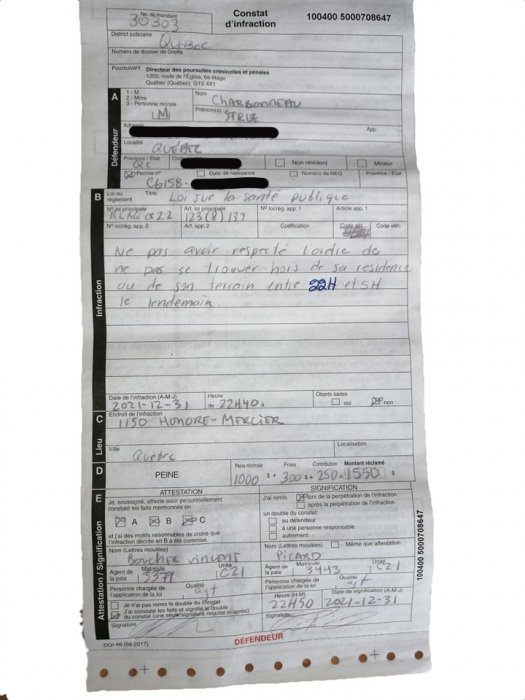 No. du mandant
30303
Constat
d'infraction
100400 5000708647
District judiciaire
QUÉBEC
Numéro de dossier de Greffe
Poursuivant Directeur des poursuites criminelles et pénales
1200, route de l'Église, 6e étage
Québec (Québec) G1V 4X1
A
Défendeur
1 - M
2 - Mme
3 - Personne morale
M
Nom
CHARBONNEAU
Prénom(s)
SERGE
Adresse
App.
Localité
QUÉBEC
Province / État
QC
Non résident
Mineur
Permis n°
Date de naissance
Numéro de NEQ
Province / État
C6158-
B
Infraction
Loi ou
règlement
Loi sur la santé publique
N° loi principale
RLRQ c. 2.2
Art. loi principale
123(8) 139
N° loi/rég. app. 1
Article app. 1
N° loi/rég. app. 2
Art. app. 2
Codification
Code véh.
Ne pas avoir respecté l'ordre de
ne pas se trouver hors de sa résidence
ou de son terrain entre 22H et 5H
le lendemain
Date de l'infraction (A-M-J)
2021-12-31
Heure
de 22H40
Objets saisis
oui
non
C
Lieu
Endroit de l'infraction
1150 HONORÉ-MERCIER
Ville
Québec
Localisation
D
PEINE
Peine minimale
Frais
Contribution
Montant réclamé
1000 $ + 300 $ + 250 = 1550 $
E
Attestation / Signification
ATTESTATION
Je, soussigné, atteste avoir personnellement
constaté les faits mentionnés en
A B C
et j'ai des motifs raisonnables de croire que
l'infraction décrite en B a été commise.
Nom (Lettres moulées)
Boucher Vincent
Agent de
la paix
Matricule
Unité
C21
Personne chargée de
l'application de la loi
Qualité
agt
Je n'ai pas remis le double du constat
J'ai constaté les faits et signifié le double
du constat (une seule signature requise ci-après)
Signature
SIGNIFICATION
J'ai remis
lors de la perpétration de l'infraction
après la perpétration de l'infraction
en double du constat:
au défendeur
à une personne responsable
autrement
Nom (Lettres moulées)
Même que attestation
PICARD
Agent de
la paix
Matricule
3443
Unité
C21
Personne chargée de
l'application de la loi
Qualité
agt
Heure (H-M)
22H50
Date de signification (A-M-J)
2021-12-31
Signature
100400 5000708647
DGI-96 (04-2017)
DÉFENDEUR